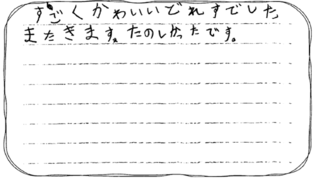 すごくかわいいどれすでした
またきます。たのしかったです。